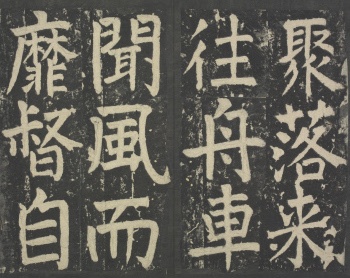 聚落来
往舟車
聞風而
靡督自